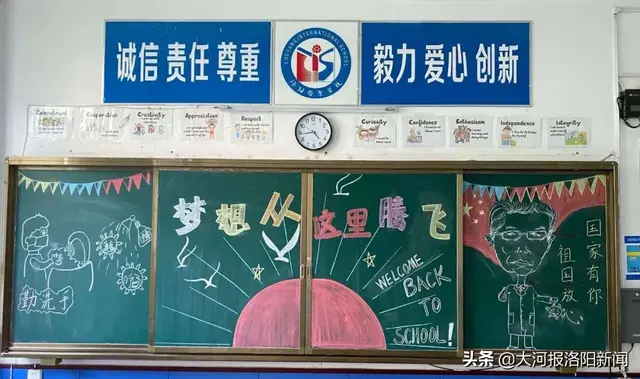 诚信 责任 尊重
LUOYANG INTERNATIONAL SCHOOL
LIS
毅力 爱心 创新
Commitment
Cooperation
Creativity
Appreciation
Respect
Curiosity
Confidence
Enthusiasm
Independence
Integrity
梦想从这里腾飞
WELCOME
BACK
TO
SCHOOL!
勤洗手
国家有你
祖国放
头条 @大河报洛阳新闻